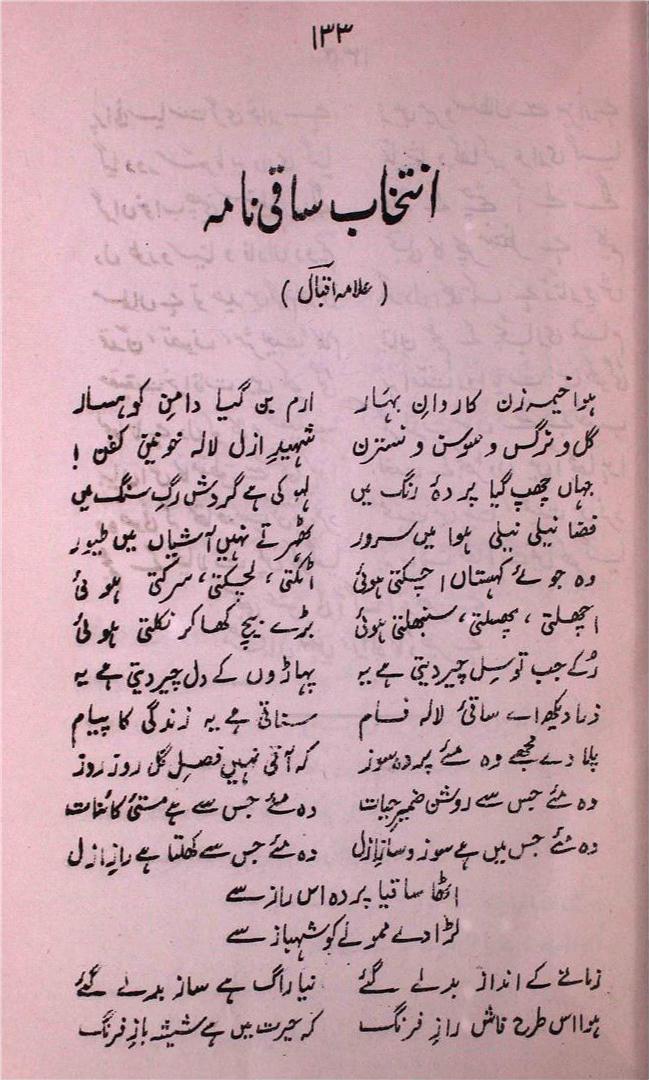 ۱۳۳
انتخاب ساقی نامہ
(علامہ اقبالؔ)
ہوا خیمہ زن کاروانِ بہار ارم بن گیا دامنِ کوہسار
گل و نرگس و سوسن و نسترن شہیدِ ازل لالہ خونیں کفن !
جہاں چھپ گیا پردۂ رنگ میں لہو کی ہے گردش رگِ سنگ میں
فضا نیلی نیلی ہوا میں سرور ٹھہرتے نہیں آشیاں میں طیور
وہ جوئے کہستاں اچکتی ہوئی اٹکتی، لچکتی، سرکتی ہوئی
اچھلتی ، پھسلتی، سنبھلتی ہوئی بڑے پیچ کھا کر نکلتی ہوئی
رُکے جب تو سِل چیر دیتی ہے یہ پہاڑوں کے دل چیر دیتی ہے یہ
ذرا دیکھ اے ساقئ لالہ فام سناتی ہے یہ زندگی کا پیام
پلا دے مجھے وہ مئے پردہ سوز کہ آتی نہیں فصلِ گل روز روز
وہ مئے جس سے روشن ضمیرِ حیات وہ مئے جس سے ہے مستئ کائنات
وہ مئے جس میں ہے سوز و سازِ ازل وہ مئے جس سے کھلتا ہے رازِ ازل
اٹھا ساقیا پردہ اس راز سے
لڑا دے ممولے کو شہباز سے
زمانے کے انداز بدلے گئے نیا راگ ہے ساز بدلے گئے
ہوا اس طرح فاش رازِ فرنگ کہ حیرت میں ہے شیشہ بازِ فرنگ